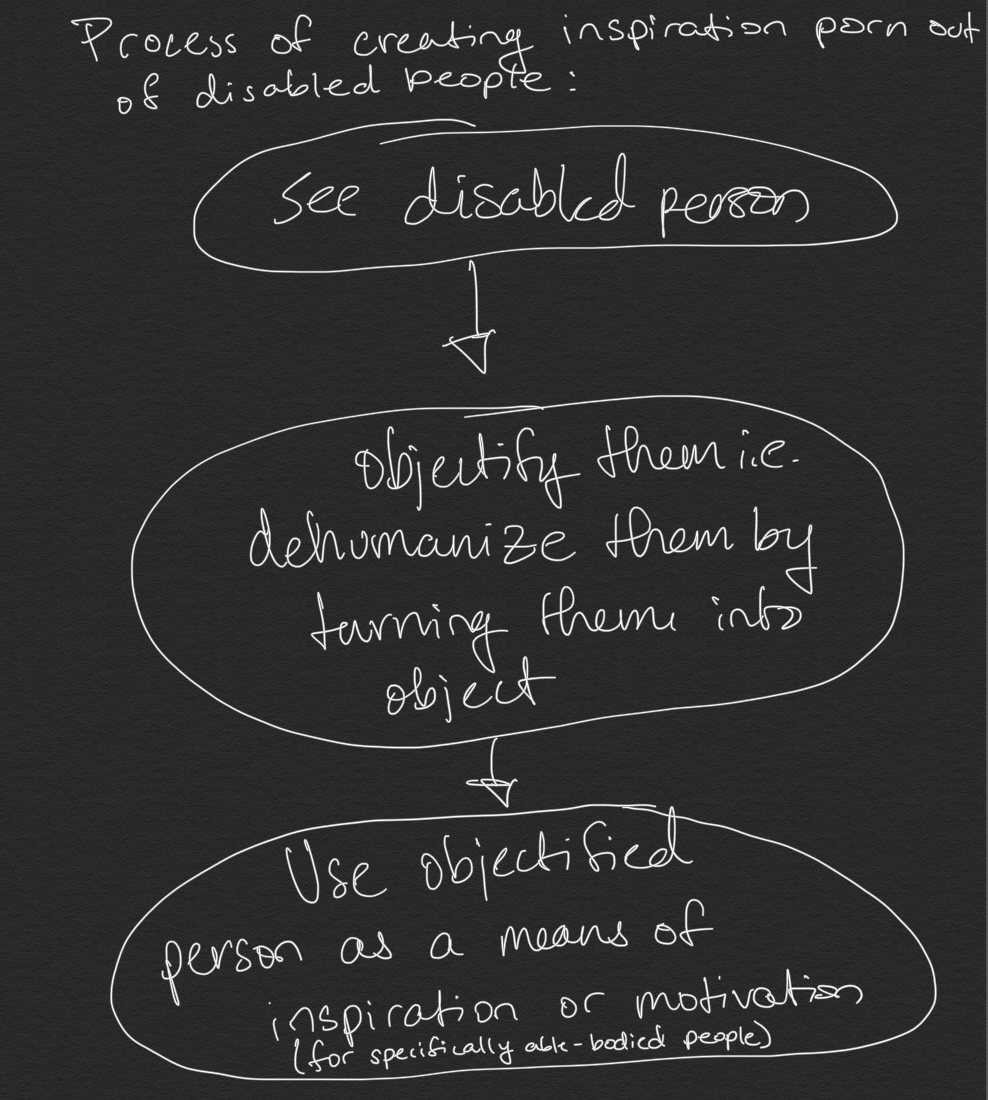 Process of creating inspiration porn out
of disabled people:
see disabled person
objectify them i.e.
dehumanize them by
turning them into
object
Use objectified
person as a means of
inspiration or motivation
(for specifically able-bodied people)